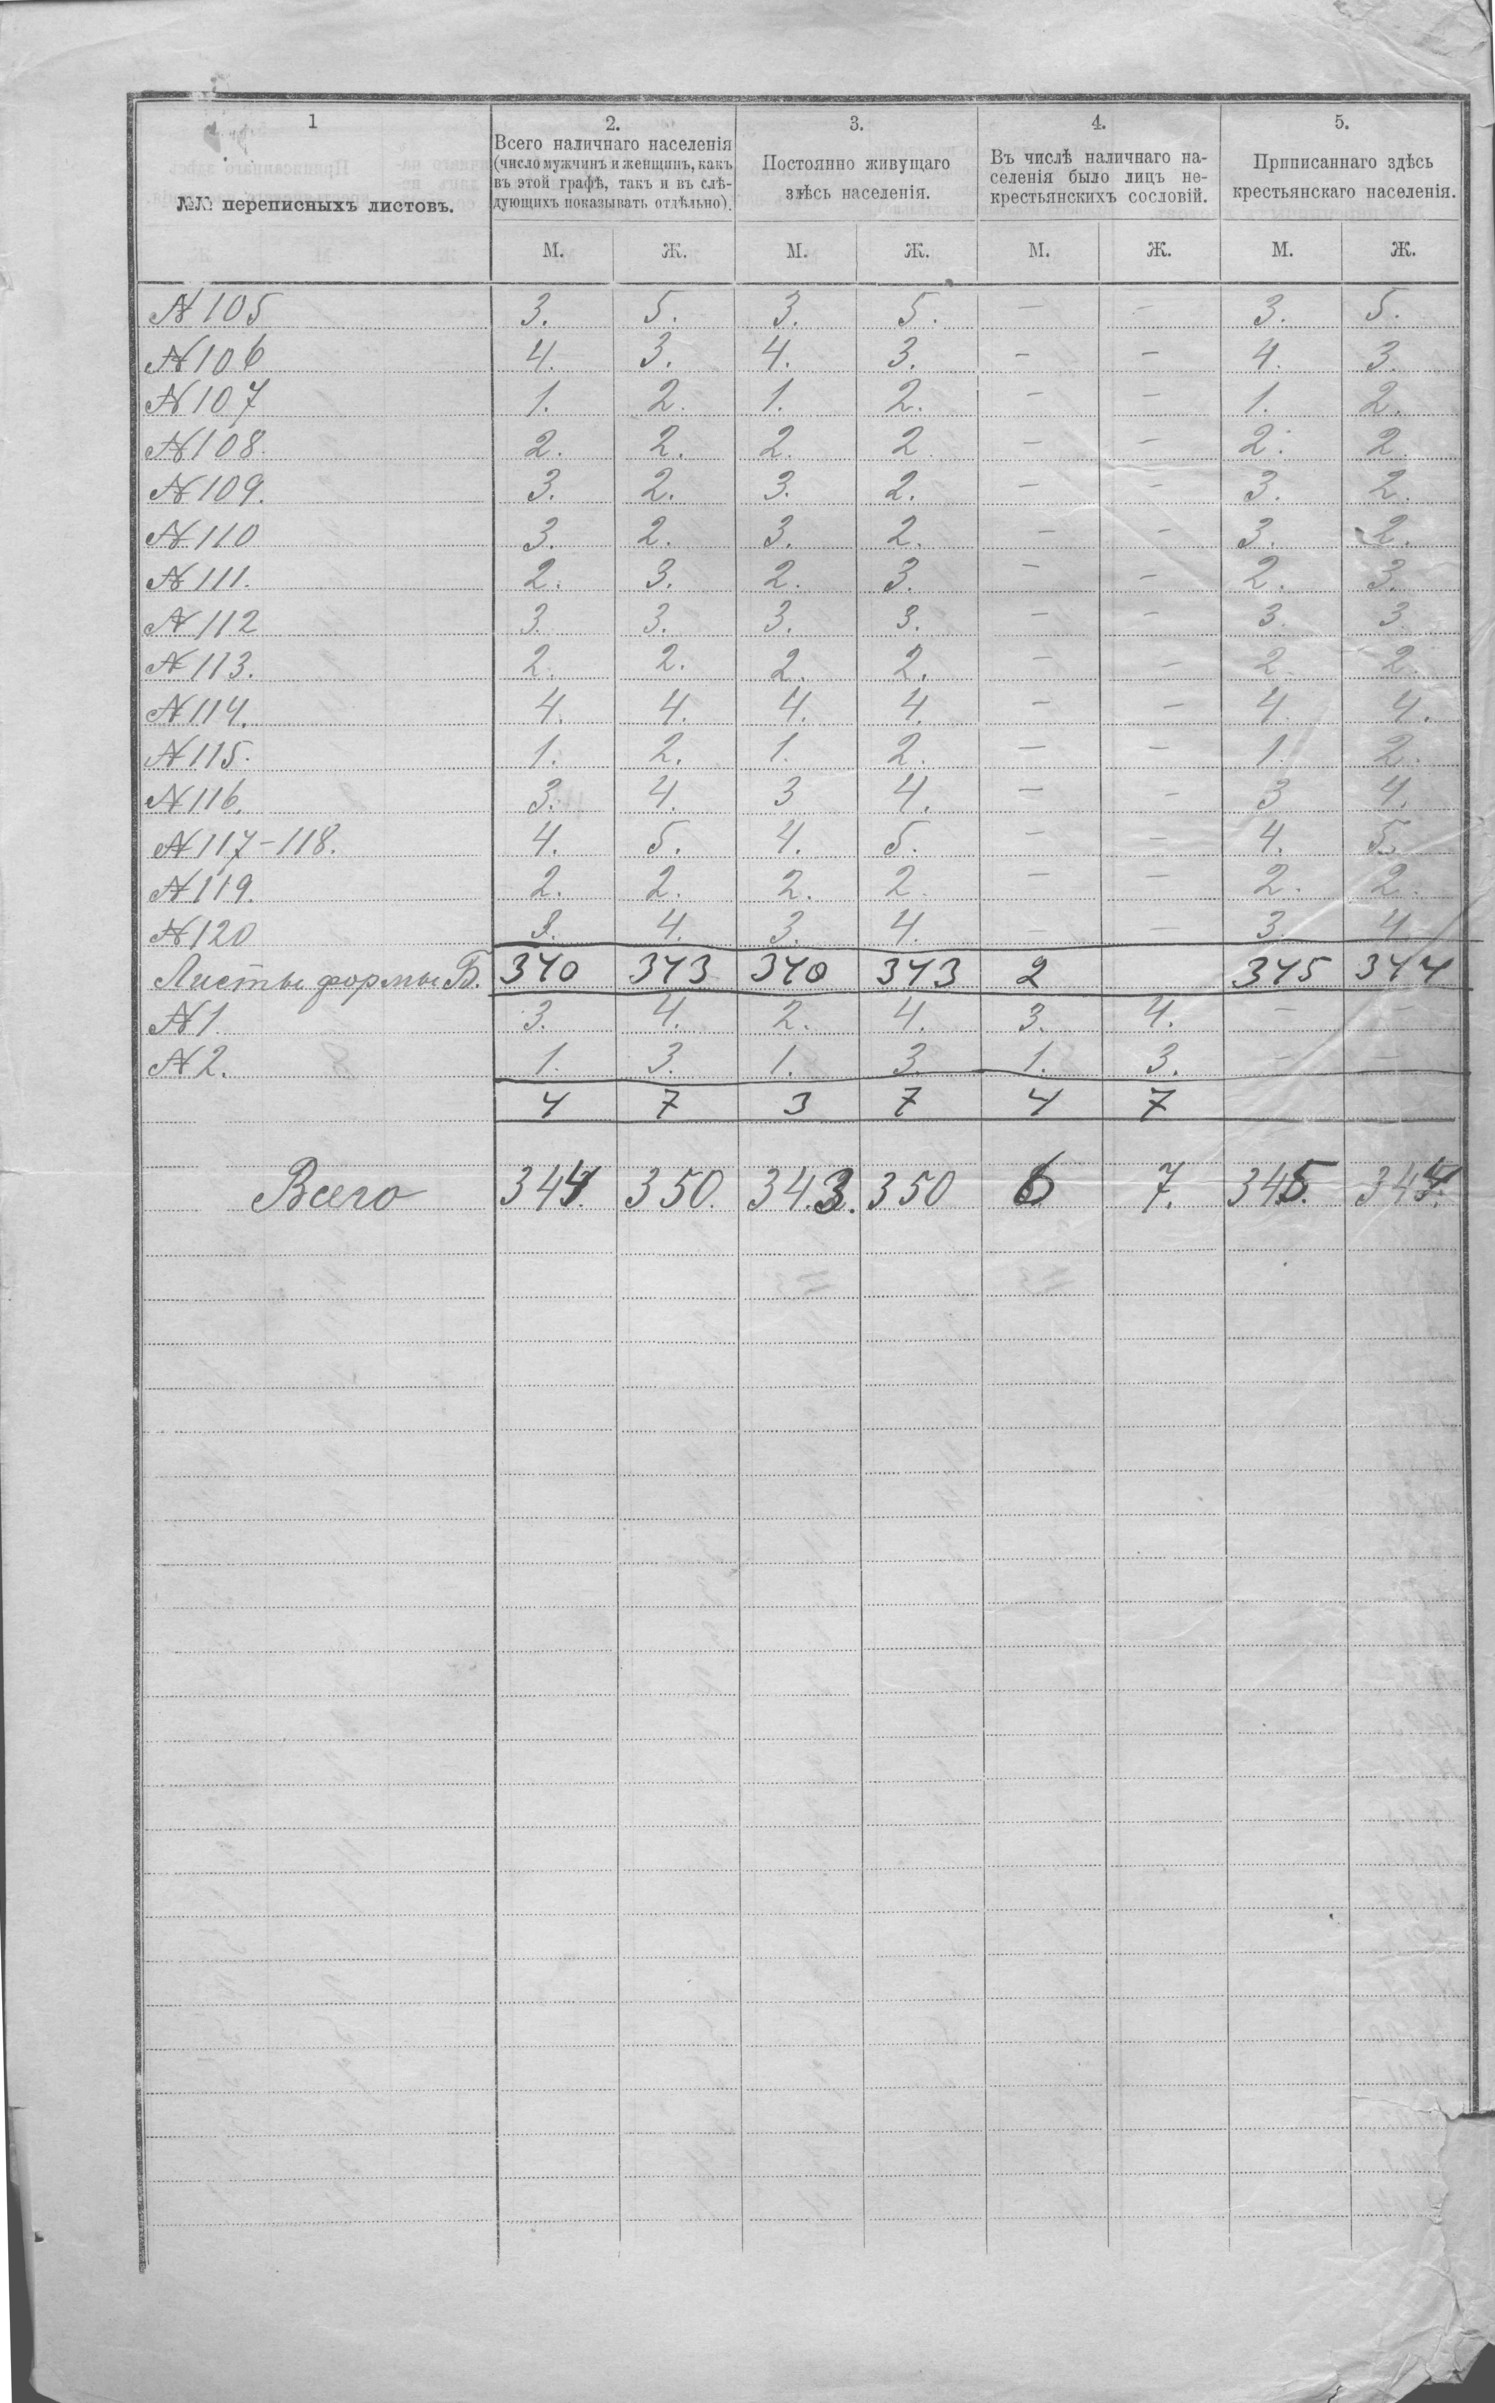 1
№№ переписныхъ листовъ.
2.
Всего наличнаго населенія
(число мужчинъ и женщинъ, какъ
въ этой графѣ, такъ и въ слѣ-
дующихъ показывать отдѣльно).
3.
Постоянно живущаго
здѣсь населенія.
4.
Въ числѣ наличнаго на-
селенія было лицъ не-
крестьянскихъ сословій.
5.
Приписаннаго здѣсь
крестьянскаго населенія.
М. Ж. М. Ж. М. Ж. М. Ж.
№ 105 3. 5. 3. 5. — — 3. 5.
№ 106 4. 3. 4. 3. — — 4. 3.
№ 107 1. 2. 1. 2. — — 1. 2.
№ 108. 2. 2. 2. 2 — — 2. 2.
№ 109. 3. 2. 3. 2. — — 3. 2.
№ 110 3. 2. 3. 2. — — 3. 2.
№ 111. 2. 3. 2. 3. — — 2. 3.
№ 112 3. 3. 3. 3. — — 3. 3
№ 113. 2. 2. 2. 2. — — 2. 2.
№ 114. 4. 4. 4. 4. — — 4. 4.
№ 115. 1. 2. 1. 2. — — 1. 2.
№ 116. 3. 4. 3 4. — — 3 4.
№ 117-118. 4. 5. 4. 5. — — 4. 5.
№ 119. 2. 2. 2. 2. — — 2. 2.
№ 120 3. 4. 3. 4. — — 3. 4.
Листы формы Б. 340 343 340 343 2 345 344
№ 1. 3. 4. 2. 4. 3. 4. — —
№ 2. 1. 3. 1. 3. 1. 3. — —
4 7 3 7 4 7
Всего 344. 350. 343. 350 6 7. 345. 344.